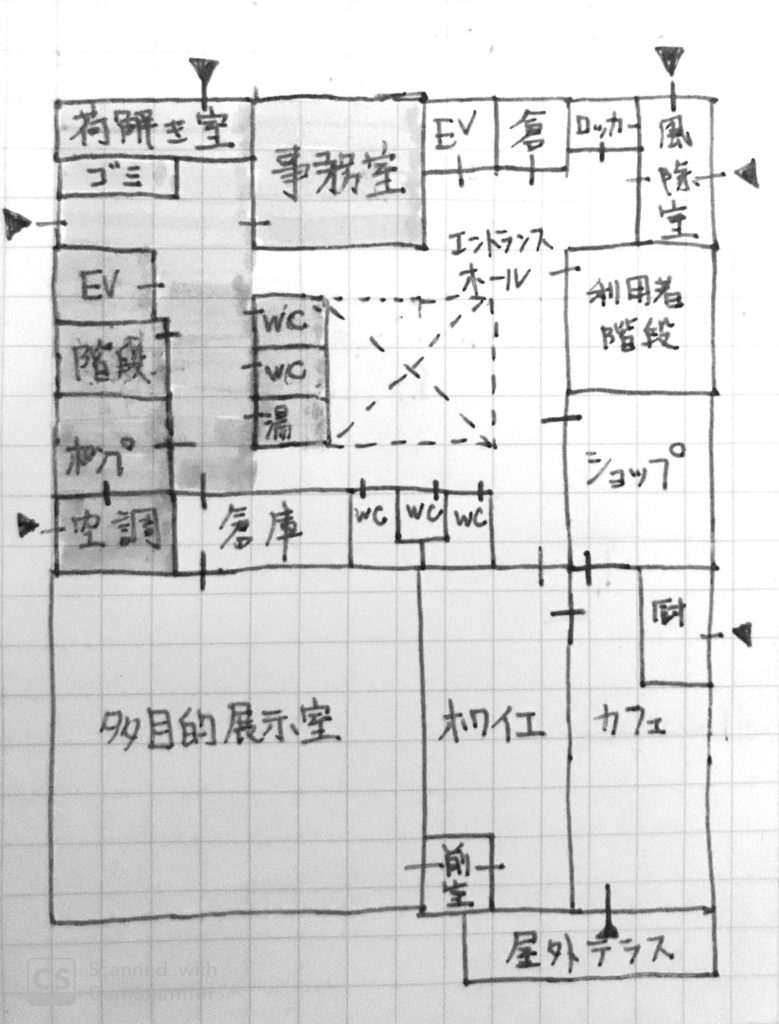 荷解き室
ゴミ
事務室
EV
倉
ロッカー
風
除
室
エントランス
ホール
EV
階段
ポンプ
空調
WC
WC
湯
利用者
階段
ショップ
倉庫
WC
WC
WC
多目的展示室
ホワイエ
カフェ
厨
前
室
屋外テラス
CS
Scanned with
CamScanner